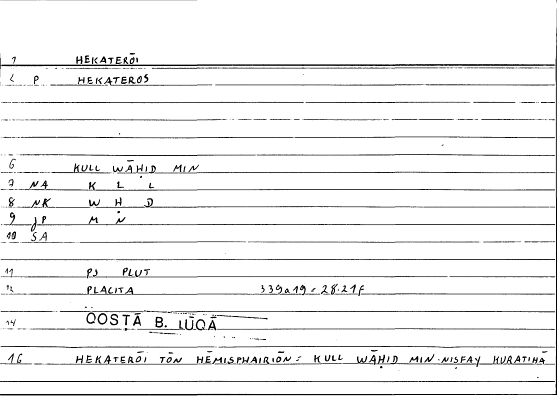 1 HEKATERŌI
2 P HEKATEROS
6 KULL WĀḤID MIN
7 NA K L L
8 NK W Ḥ D
9 JP M N
10 SA
11 PS PLUT
12 PLACITA 339a19 = 28.21f
14 QOSṬĀ B. LŪQĀ
16 HEKATERŌI TŌN HĒMISPHAIRIŌN = KULL WĀḤID MIN NIṢFAY KURATIHĀ